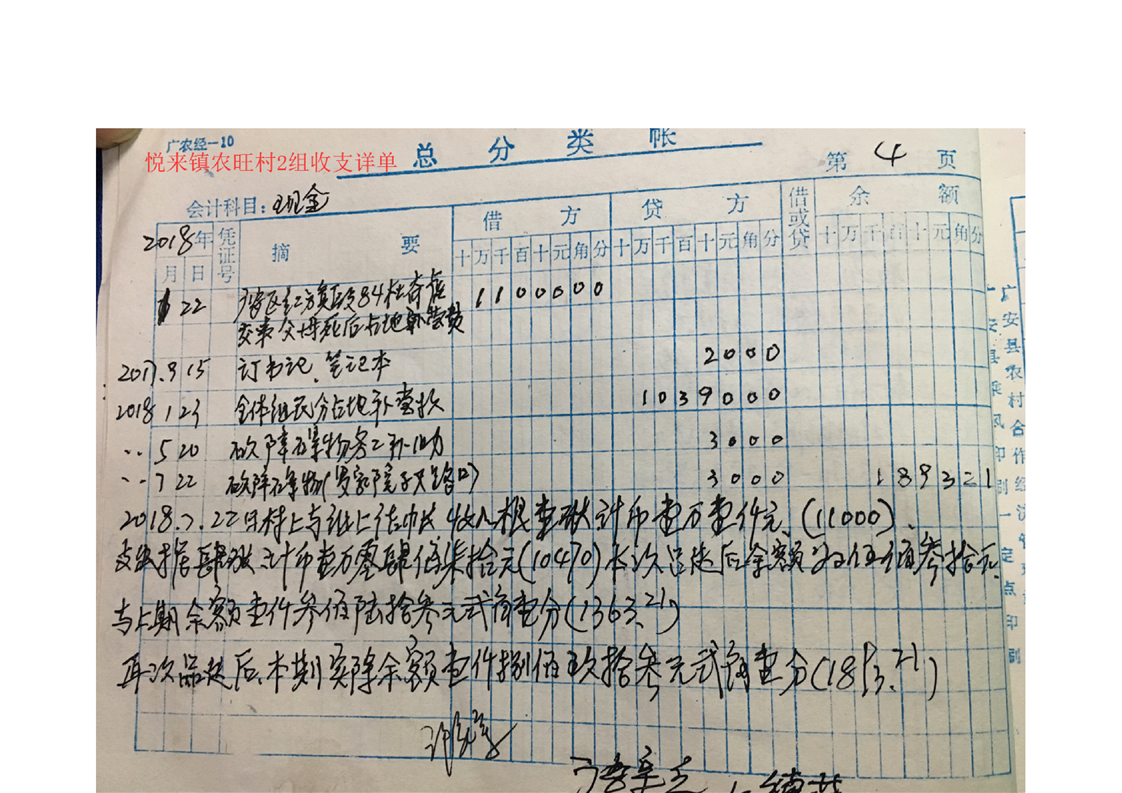 广农经—10
总分类帐
悦来镇农旺村2组收支详单
第 4 页
会计科目：现金
2018年 凭证号 摘要 借方 贷方 借或贷 余额
月 日 十万千百十元角分 十万千百十元角分 十万千百十元角分
1 22 1100000
交来父母死后占地补偿费
2017.9 15 订书记、笔记本 2000
2018 1 23 全体组民分占地补偿款 1039000
〃 5 20 砍障碍物务工补助 3000
〃 7 22 砍障碍物 3000 189321
2018.7.22日村上与组上结帐 收入 据壹张计币壹万壹仟元(11000).
支出据肆张计币壹万零肆佰柒拾元(10470)本次品迭后余额为伍佰叁拾元
与上期余额壹仟叁佰陆拾叁元贰角壹分(1363.21)
再次品迭后,本期实际余额壹仟捌佰玖拾叁元贰角壹分(1893.21)
广安县农村合作经济
广安县乐风印刷 定点印刷